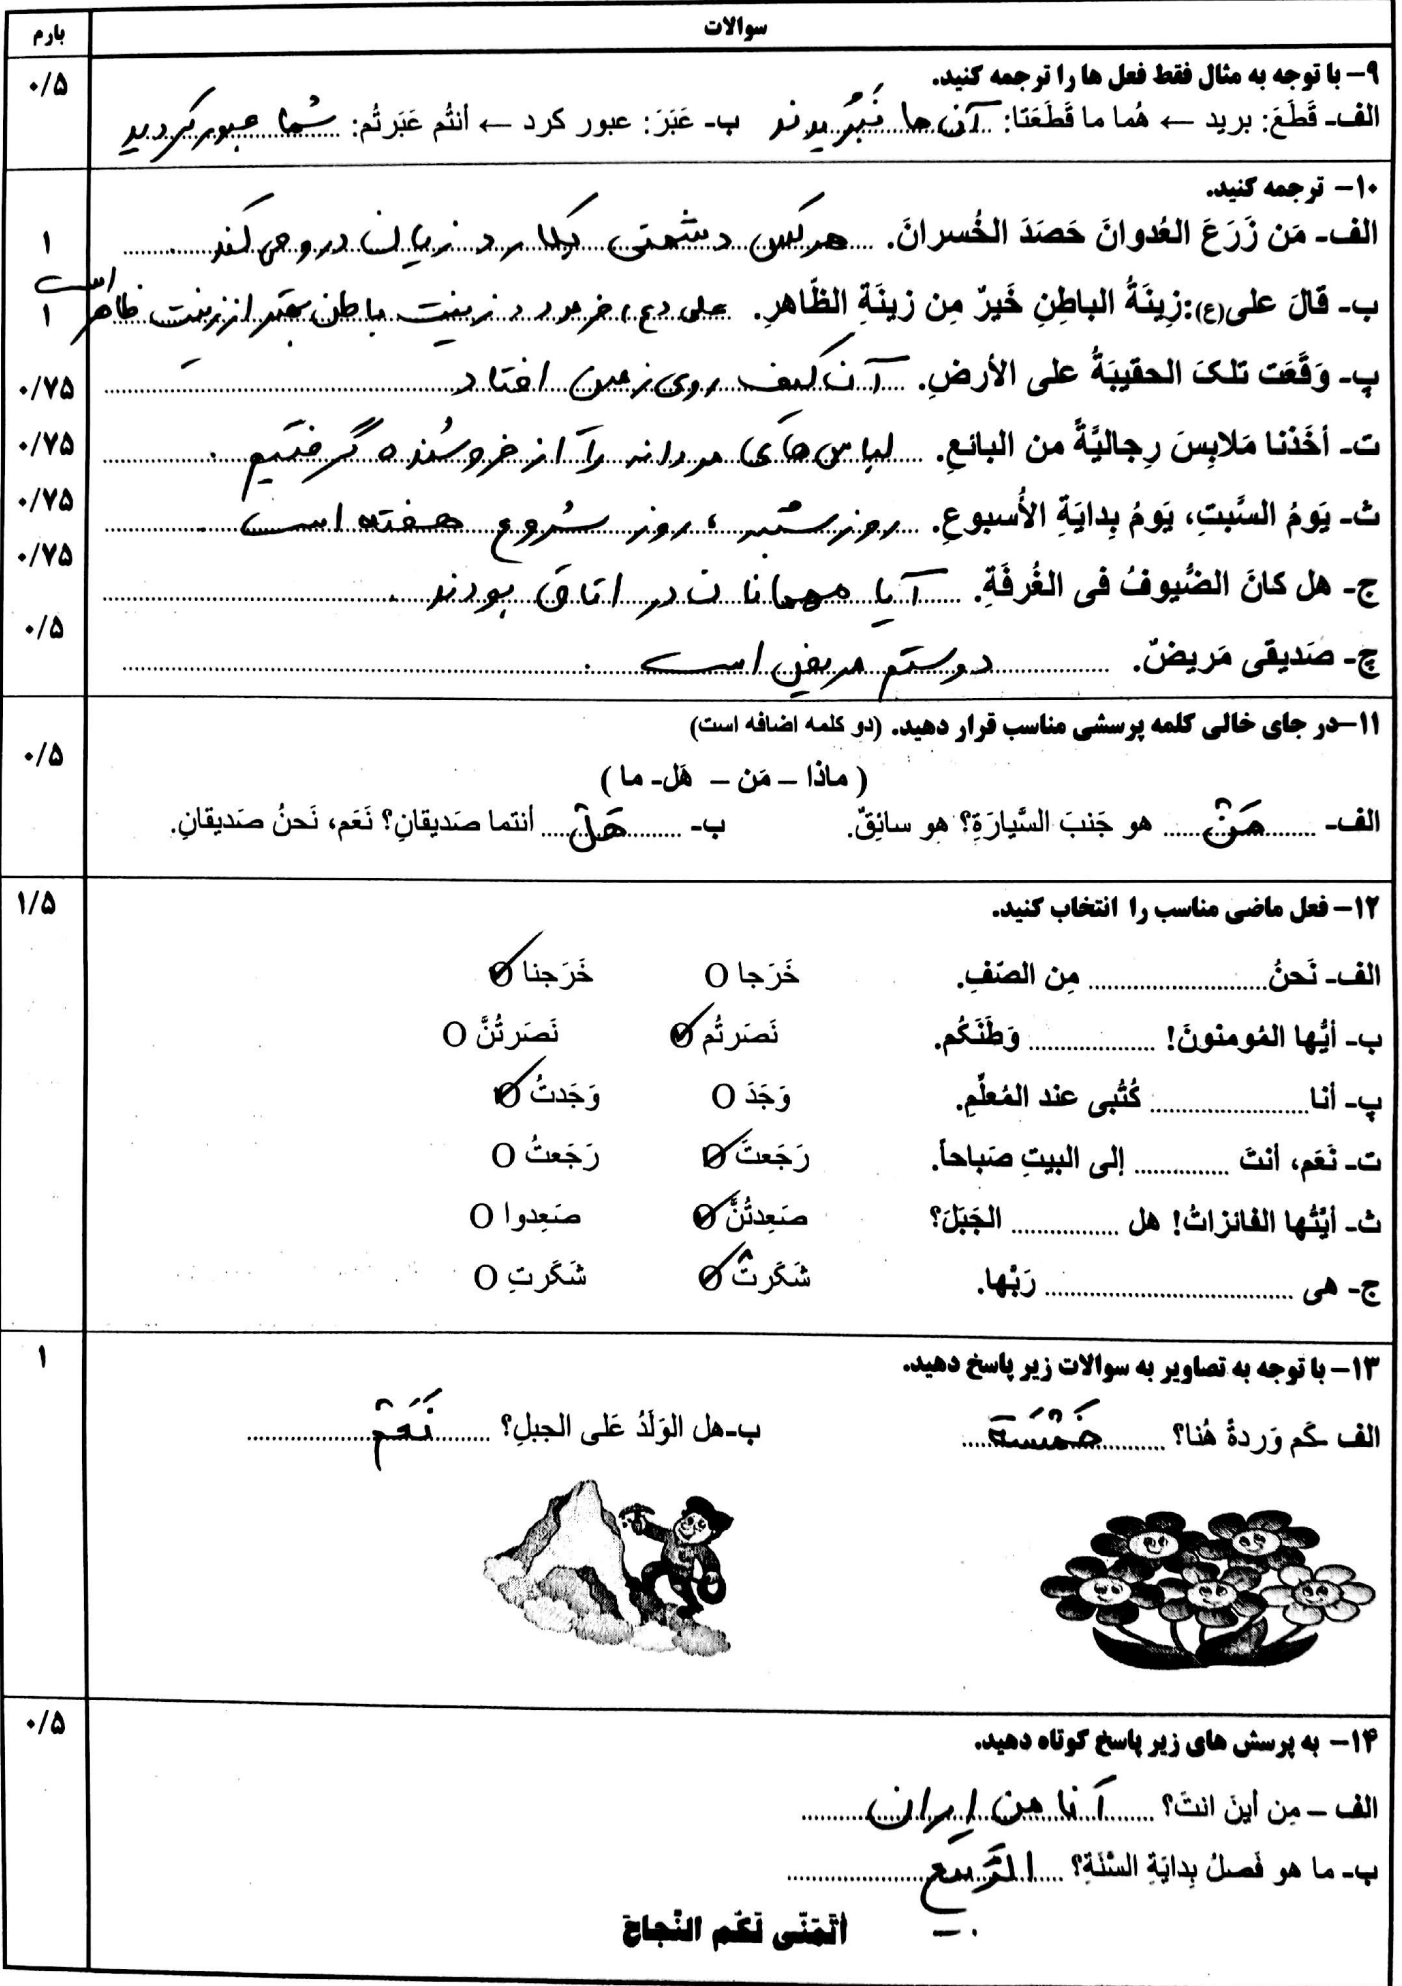 سوالات
بارم
۹– با توجه به مثال فقط فعل ها را ترجمه کنید.
۰/۵
الف- قَطَعَ: برید ← هُما ما قَطَعَتا: آن ها نَبُریدند ب- عَبَرَ: عبور کرد ← أنتُم عَبَرتُم: شُما عبور کردید
۱۰– ترجمه کنید.
الف- مَن زَرَعَ العُدوانَ حَصَدَ الخُسرانَ. هر کس دشمنی بکارد زیان درو می کند.
۱
ب- قالَ علی(ع):زِینَةُ الباطِنِ خَیرٌ مِن زینَةِ الظّاهرِ. علی (ع) فرمود: زینت باطن بهتر از زینت ظاهر است
۱
پ- وَقَعَت تلکَ الحقیبَةُ علی الأرضِ. آن کیف روی زمین افتاد
۰/۷۵
ت- أخَذنا مَلابِسَ رِجالیَّةً من البائعِ. لباس های مردانه را از فروشنده گرفتیم.
۰/۷۵
ث- یَومُ السَّبتِ، یَومُ بِدایَةِ الأُسبوعِ. روز شنبه، روز شروع هفته است.
۰/۷۵
ج- هل کانَ الضُّیوفُ فی الغُرفَةِ. آیا مهمانان در اتاق بودند.
۰/۷۵
چ- صَدیقی مَریضٌ. دوستم مریض است.
۰/۵
۱۱–در جای خالی کلمه پرسشی مناسب قرار دهید. (دو کلمه اضافه است)
۰/۵
( ماذا – مَن – هَل- ما )
الف- مَنْ هو جَنبَ السَّیارَةِ؟ هو سائِقٌ. ب- هَلْ أنتما صَدیقانِ؟ نَعَم، نَحنُ صَدیقانِ.
۱۲– فعل ماضی مناسب را انتخاب کنید.
۱/۵
الف- نَحنُ.................... مِن الصّفِ. خَرَجا O خَرَجنا O
ب- أیُّها المُومنونَ! .................. وَطَنَکُم. نَصَرتُم O نَصَرتُنَّ O
پ- أنا...................... کُتُبی عند المُعلِّمِ. وَجَدَ O وَجَدتُ O
ت- نَعَم، أنتَ ............. إلی البیتِ صَباحاً. رَجَعتَ O رَجَعتُ O
ث- أیَّتُها الفائزاتُ! هل ............... الجَبَلَ؟ صَعِدتُنَّ O صَعِدوا O
ج- هی ................................... رَبَّها. شَکَرتْ O شَکَرتِ O
۱۳– با توجه به تصاویر به سوالات زیر پاسخ دهید.
۱
الف ـکَم وَردةً هُنا؟ خَمْسَة ب-هل الوَلَدُ عَلی الجبلِ؟ نَعَمْ
۱۴– به پرسش های زیر پاسخ کوتاه دهید.
۰/۵
الف – مِن أینَ انتَ؟ أنا من إیران
ب- ما هو فَصلُ بِدایَةِ السَّنَةِ؟ الرَّبیع
أتَمَنّی لَکُم النَّجاحَ